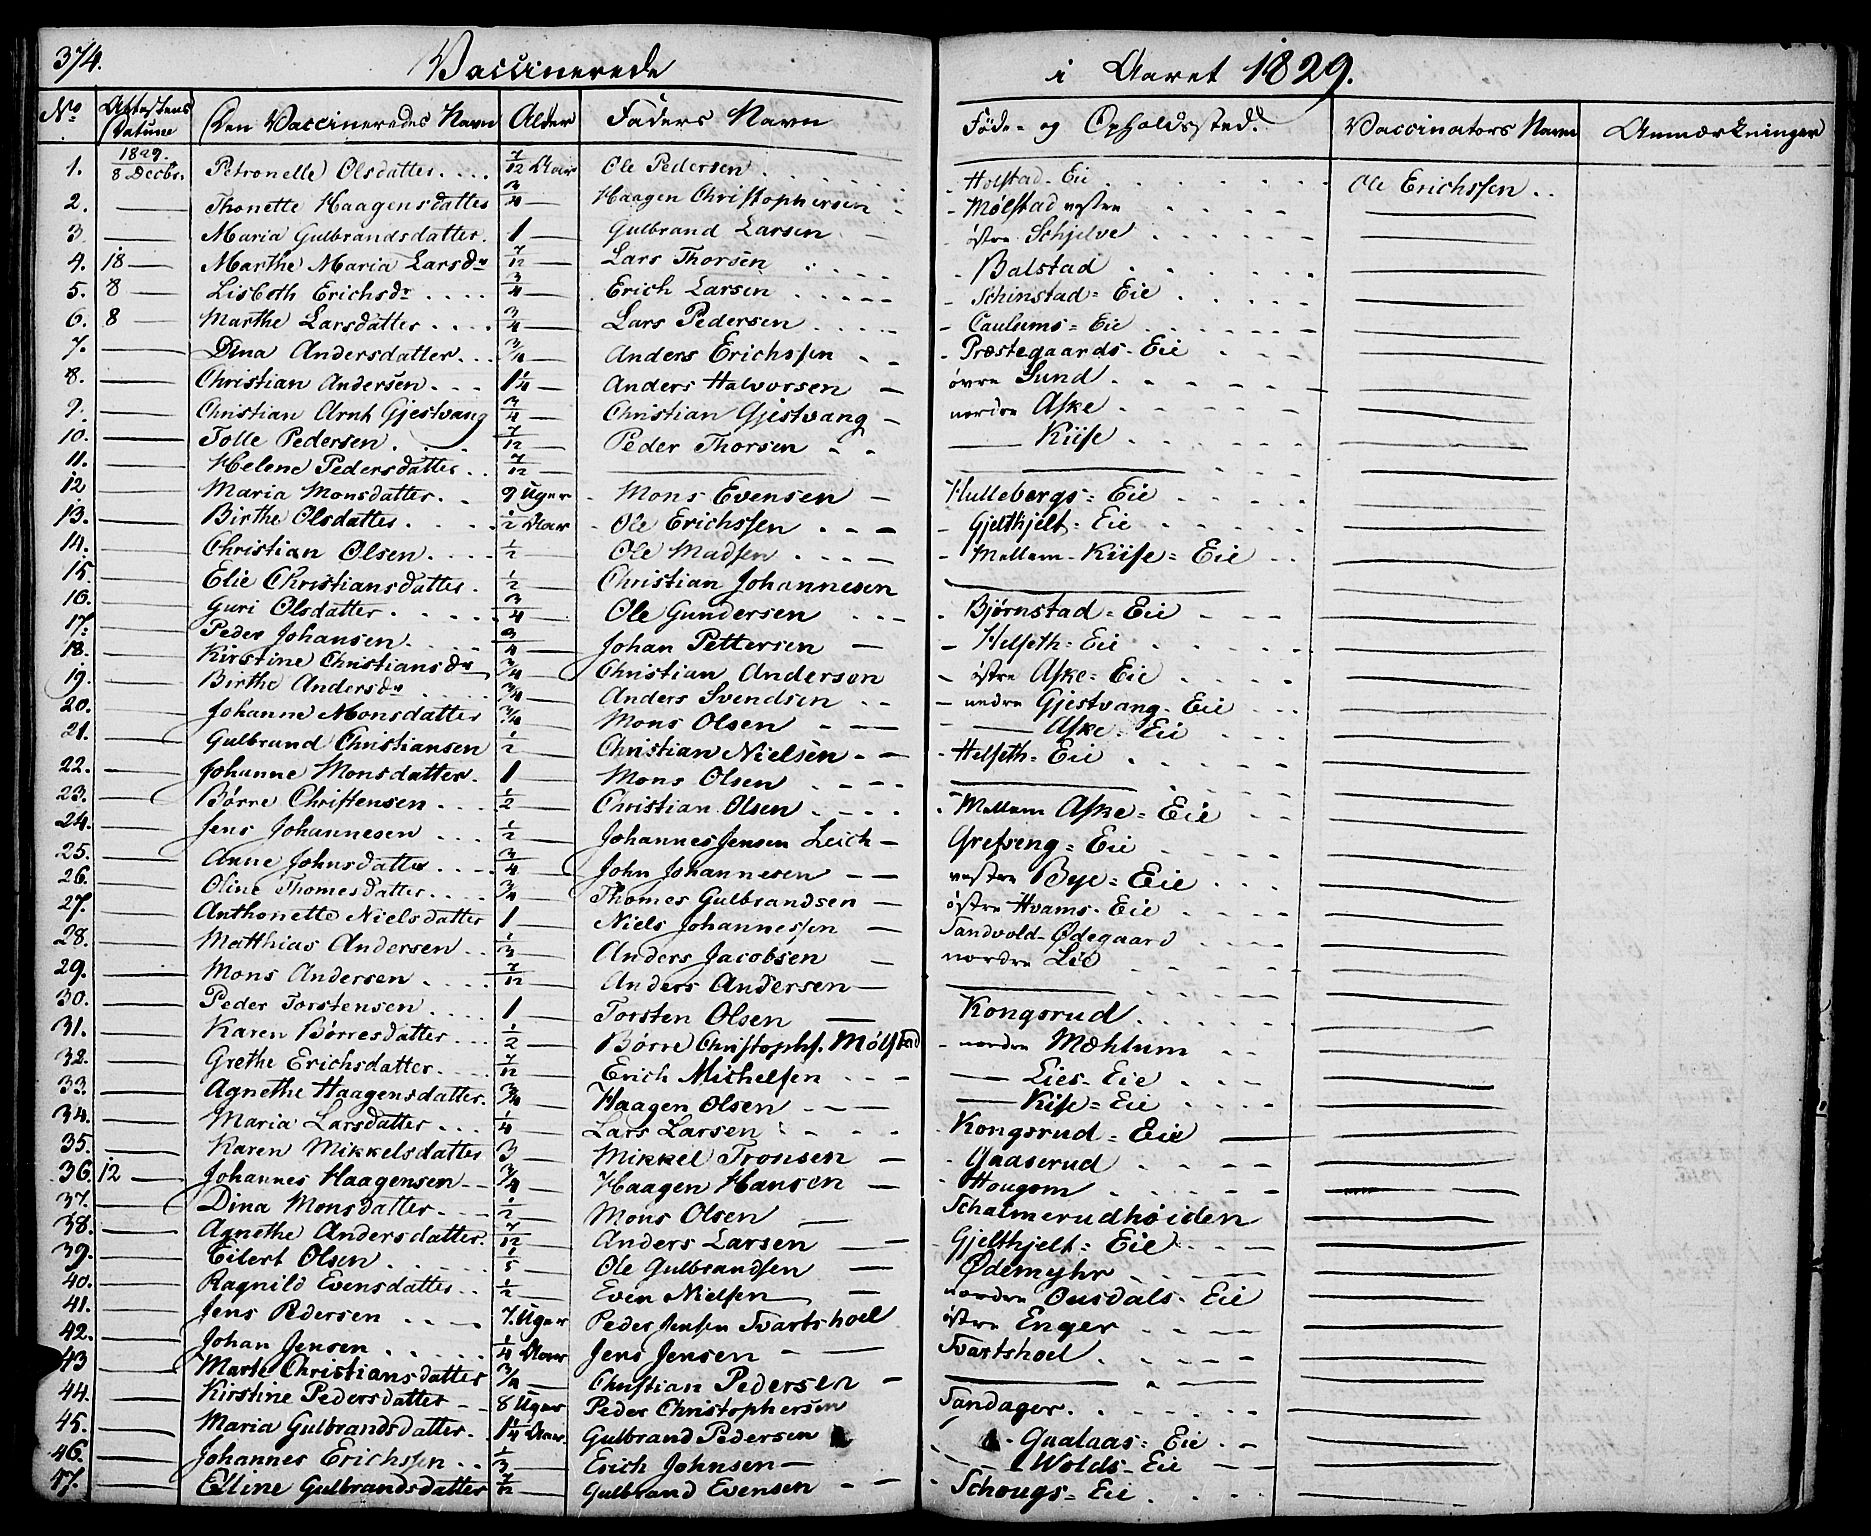 374. Vaccinerede i Aaret 1829.
No. Attestens Datum Den Vaccineredes Navn Alder Faders Navn Føde- og Opholdssted. Vaccinators Navn Anmærkninger
1. 1829. 8 Decbr. Petronelle Olsdatter.... 7/12 Aar Ole Pedersen - Holstad-Eie Ole Erichssen..
2. — Thonette Haagensdatter 3/4 — Haagen Christophersen - Mølstad vestre —
3. — Maria Gulbrandsdatter. 1 — Gulbrand Larsen - østre Schjelve —
4. 18 — Marthe Maria Larsdr 7/12 — Lars Thorsen - Balstad —
5. 8 — Lisbeth Erichsdr.... 3/4 — Erich Larsen - Schinstad=Eie —
6. 8 — Marthe Larsdatter.... 3/4 — Lars Pedersen - Caulums=Eie —
7. — Dina Andersdatter... 3/4 — Anders Erichssen - Præstegaards-Eie —
8. — Christian Andersen.... 1 1/4 — Anders Halvorsen øvre Sund —
9. — Christian Arnt Gjestvang 3/4 — Christian Gjestvang nordre Aske —
10. — Tolle Pedersen. 7/12 — Peder Thorsen — Kiise —
11. — Helene Pedersdatter.. 7/12 — — — —
12 — Maria Monsdatter.. 9 Uger Mons Evensen Hullebergs=Eie —
13. — Birthe Olsdatter.... 1/2 Aar Ole Erichssen - Gjelthjelt=Eie —
14. — Christian Olsen.... 1/2 — Ole Madsen - Mellem-Kiise=Eie —
15. — Elie Christiansdatter. 1/2 — Christian Johannesen — —
16. — Guri Olsdatter.... 3/4 — Ole Gundersen - Bjørnstad=Eie —
17. — Peder Johansen.... 3/4 — Johan Pettersen - Helseth=Eie —
18. — Kirstine Christiansdr 3/4 — Christian Anderson - østre Aske=Eie —
19. — Birthe Andersdr.... 3/4 — Anders Svendsen - nedre Gjestvang-Eie —
20. — Johanne Monsdatter 3/4 — Mons Olsen — Aske=Eie —
21. — Gulbrand Christiansen 1/2 — Christian Nielsen - Helseth=Eie —
22. — Johanne Monsdatter. 1 — Mons Olsen — —
23. — Børre Christensen... 1/2 — Christian Olsen - Mellem Aske=Eie —
24. — Jens Johannesen... 1/2 — Johannes Jensen Leich Grefseng=Eie —
25. — Anne Johnsdatter.... 3/4 — John Johannesen vestre Bye=Eie —
26. — Oline Thomesdatter.... 3/4 — Thomes Gulbrandsen østre Hvams-Eie —
27. — Anthonette Nielsdatter 1 — Niels Johannessen Sandvold-Ødegaard —
28. — Matthias Andersen.. 1/3 — Anders Jacobsen nordre Lie —
29. — Mons Andersen.... 7/12 — Anders Andersen — —
30. — Peder Torstensen.... 1 — Torsten Olsen Kongsrud —
31. — Karen Børresdatter... 1/2 — Børre Christophs. Mølstad - nordre Mæhlum —
32. — Grethe Erichsdatter.... 7/12 — Erich Michelsen — Lies-Eie —
33. — Agnethe Haagensdatter. 3/4 — Haagen Olsen — Kise=Eie —
34. — Maria Larsdatter... 1/4 — Lars Larsen - Kongsrud=Eie —
35. — Karen Mikkelsdatter 3 — Mikkel Tronsen - Gaaserud —
36. 12 — Johannes Haagensen 3/4 — Haagen Hansen - Hougom —
37. — Dina Monsdatter... 1/2 — Mons Olsen Schalmerudhøiden —
38. — Agnethe Andersdatter. 7/12 — Anders Larsen - Gjelthjelt=Eie —
39. — Eilert Olsen..... 1/5 — Ole Gulbrandsen Ødemyhr —
40. — Ragnild Evensdatter.. 1/2 — Even Nielsen nordre Ousdals-Eie —
41. — Jens Pedersen 7. Uger Peder Jensen Svartshoel østre Enger —
42. — Johan Jensen..... 1/4 Aar Jens Jensen Svartshoel —
43 — Marte Christiansdatter 3/4 — Christian Pedersen — —
44. — Kirstine Pedersdatter 8 Uger Peder Christophersen Sandager. —
45. — Maria Gulbrandsdatter. 1 1/4 Aar. Gulbrand Pedersen - Gaalaas=Eie —
46. — Johannes Erichssen.. 1/3 — Erich Johnsen - Wolds-Eie —
47. — Elline Gulbrandsdatter 7/12 — Gulbrand Evensen - Schougs=Eie —